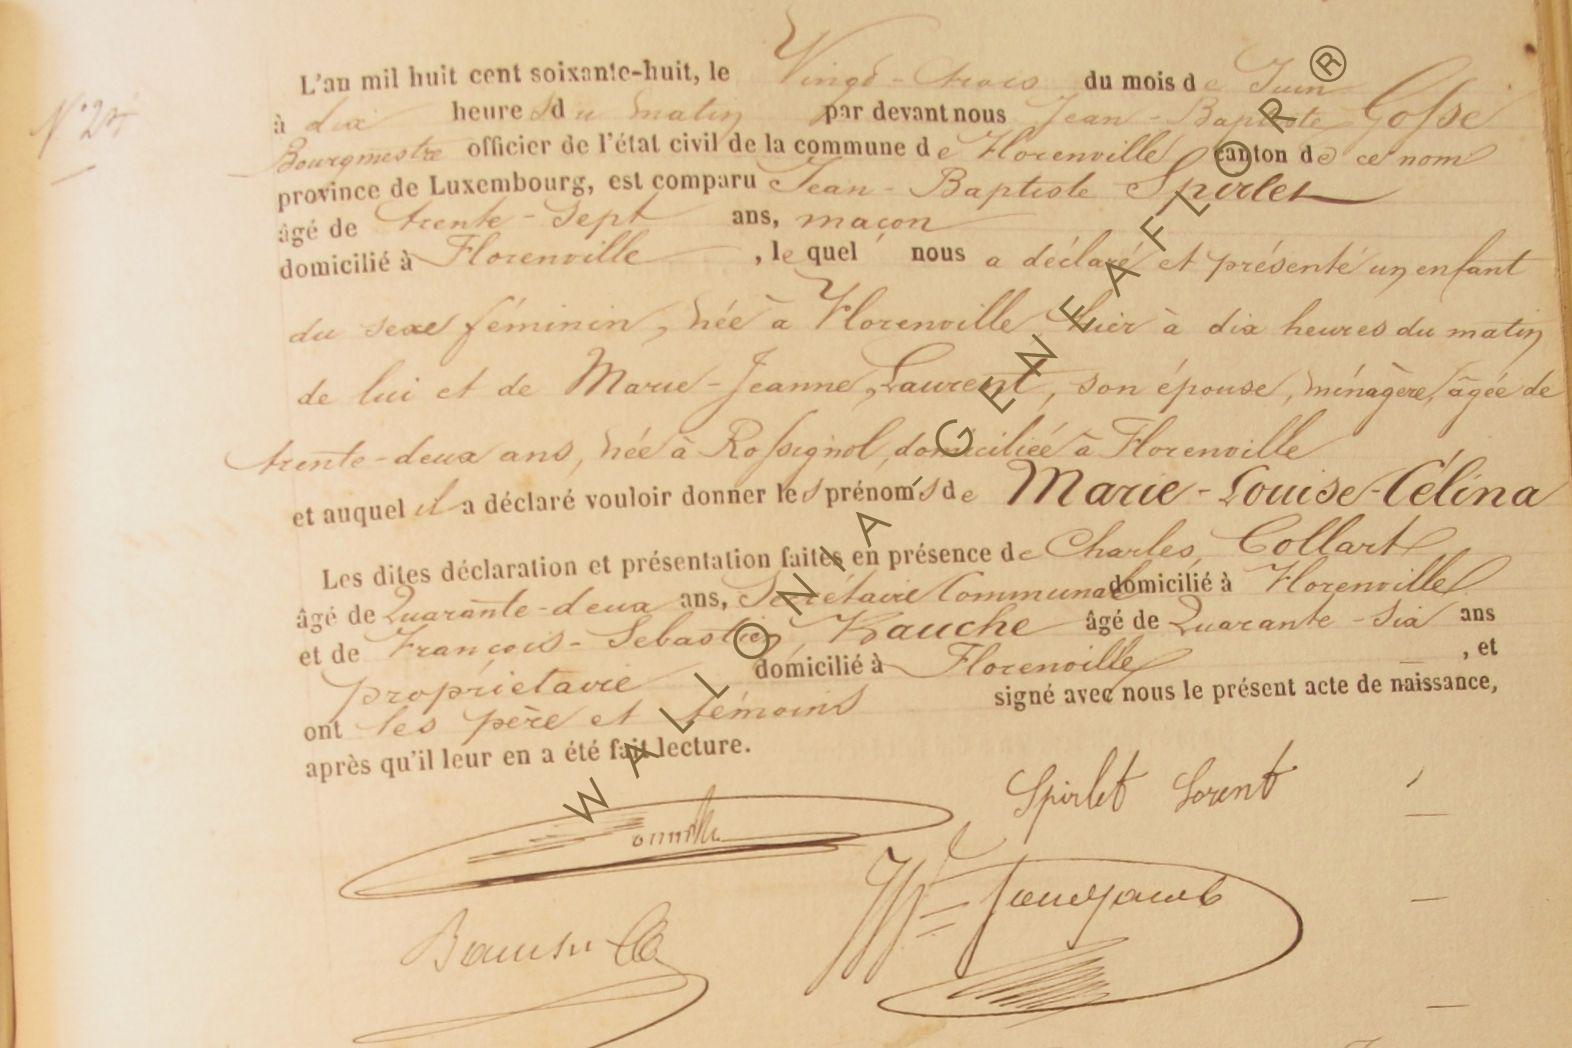 L'an mil huit cent soixante-huit, le Vingt-trois du mois de Juin
N° 24
à dix heures du matin par devant nous Jean-Baptiste Gosse
Bourgmestre officier de l'état civil de la commune de Florenville canton de ce nom
province de Luxembourg, est comparu Jean-Baptiste Spirlet
âgé de trente-sept ans, maçon
domicilié à Florenville, le quel nous a déclaré et présenté un enfant
du sexe féminin, née à Florenville hier à dix heures du matin
de lui et de Marie-Jeanne Laurent, son épouse, ménagère, âgée de
trente-deux ans, née à Rossignol, domiciliée à Florenville
et auquel il a déclaré vouloir donner les prénoms de Marie-Louise-Célina
Les dites déclaration et présentation faites en présence de Charles Collart
âgé de Quarante-deux ans, Secrétaire Communal domicilié à Florenville
et de François-Sebastien, âgé de Quarante-six ans
propriétaire domicilié à Florenville, et
ont les père et témoins signé avec nous le présent acte de naissance,
après qu'il leur en a été fait lecture.
Spirlet Lorent
WALLONIA-GENEAFLOR®